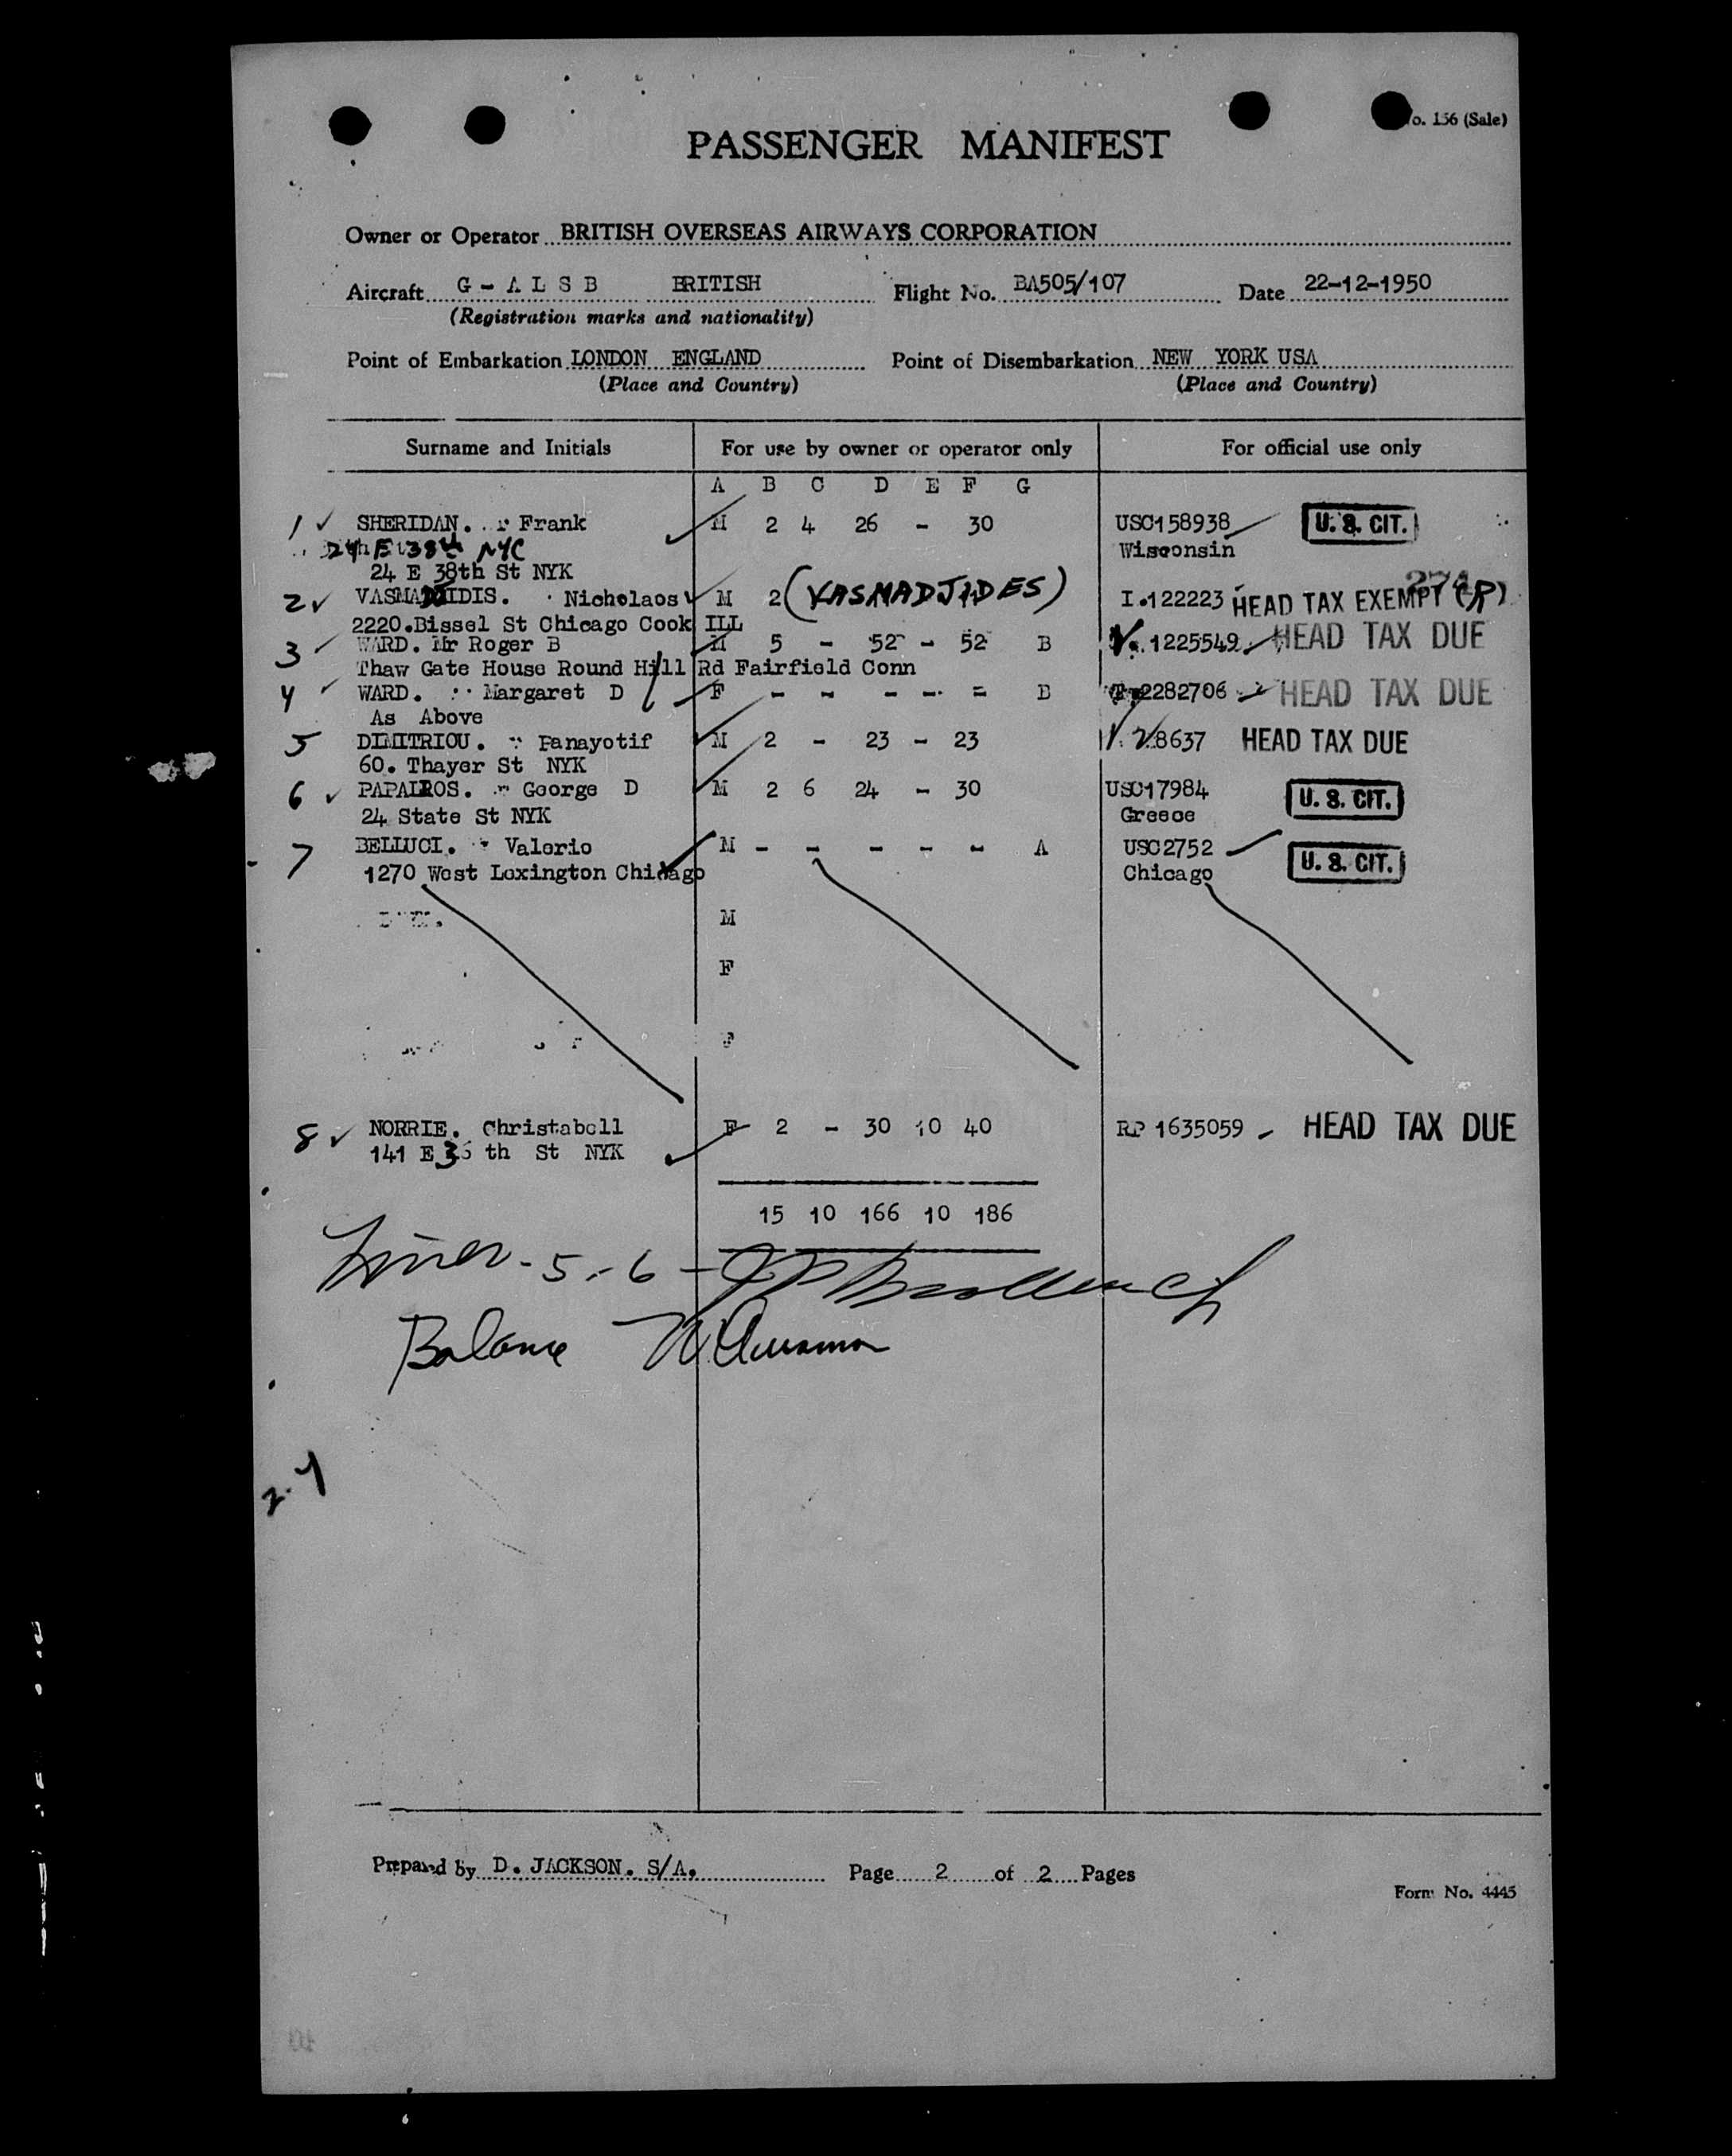 o. 156 (Sale)
PASSENGER MANIFEST
Owner or Operator BRITISH OVERSEAS AIRWAYS CORPORATION
Aircraft G - A L S B BRITISH Flight No. BA505/107 Date 22-12-1950
(Registration marks and nationality)
Point of Embarkation LONDON ENGLAND Point of Disembarkation NEW YORK USA
(Place and Country) (Place and Country)
Surname and Initials For use by owner or operator only For official use only
A B C D E F G
1 ✓ SHERIDAN. Frank M 2 4 26 - 30 USC158938 U. S. CIT.
24 E 38th NYC Wisconsin
24 E 38th St NYK
2 ✓ Nicholaos M 2 (VASMADJIDES) I.122223 HEAD TAX EXEMPT (R)
2220.Bissel St Chicago Cook ILL
3 ✓ WARD. Mr Roger B M 5 - 52 - 52 B 1225549 HEAD TAX DUE
Thaw Gate House Round Hill Rd Fairfield Conn
4 ✓ WARD. Margaret D F - - - - - B 2282706 HEAD TAX DUE
As Above
5 DIMITRIOU. Panayotif M 2 - 23 - 23 8637 HEAD TAX DUE
60. Thayer St NYK
6 ✓ PAPAIROS. George D M 2 6 24 - 30 USC17984 U. S. CIT.
24 State St NYK Greece
7 BELLUCI. Valerio M - - - - - A USC2752 U. S. CIT.
1270 West Lexington Chicago Chicago
M
F
F
8 ✓ NORRIE. Christabell F 2 - 30 10 40 RP 1635059 HEAD TAX DUE
141 E 36 th St NYK
15 10 166 10 186
5-6
Balance
2.4
Prepared by D. JACKSON. S/A. Page 2 of 2 Pages
Form No. 4445